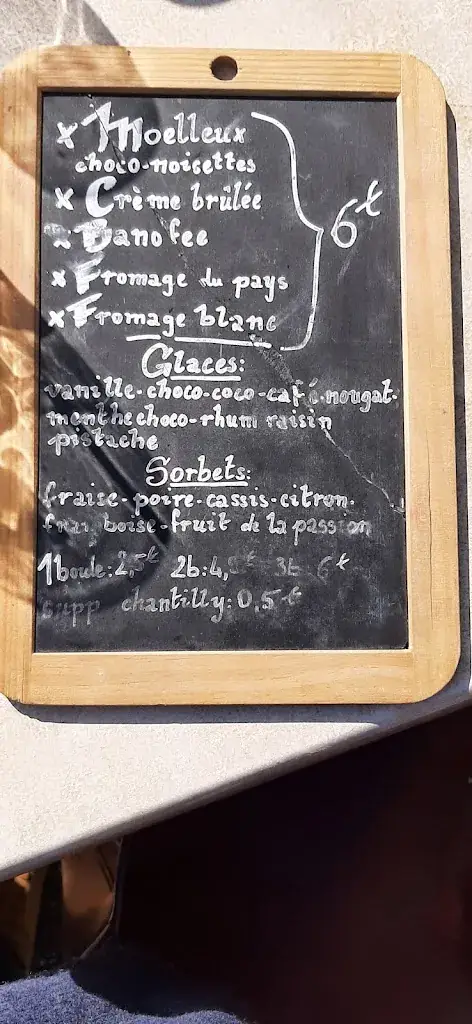 x Moelleux
choco-noisettes
x Crème brûlée
x Banofee
x Fromage du pays
x Fromage blanc
6€
Glaces:
vanille-choco-coco-café-nougat-
menthe choco-rhum raisin
pistache
Sorbets:
fraise-poire-cassis-citron-
framboise-fruit de la passion
1boule:2,5€ 2b:4,5€ 3b 6€
supp chantilly:0,5€